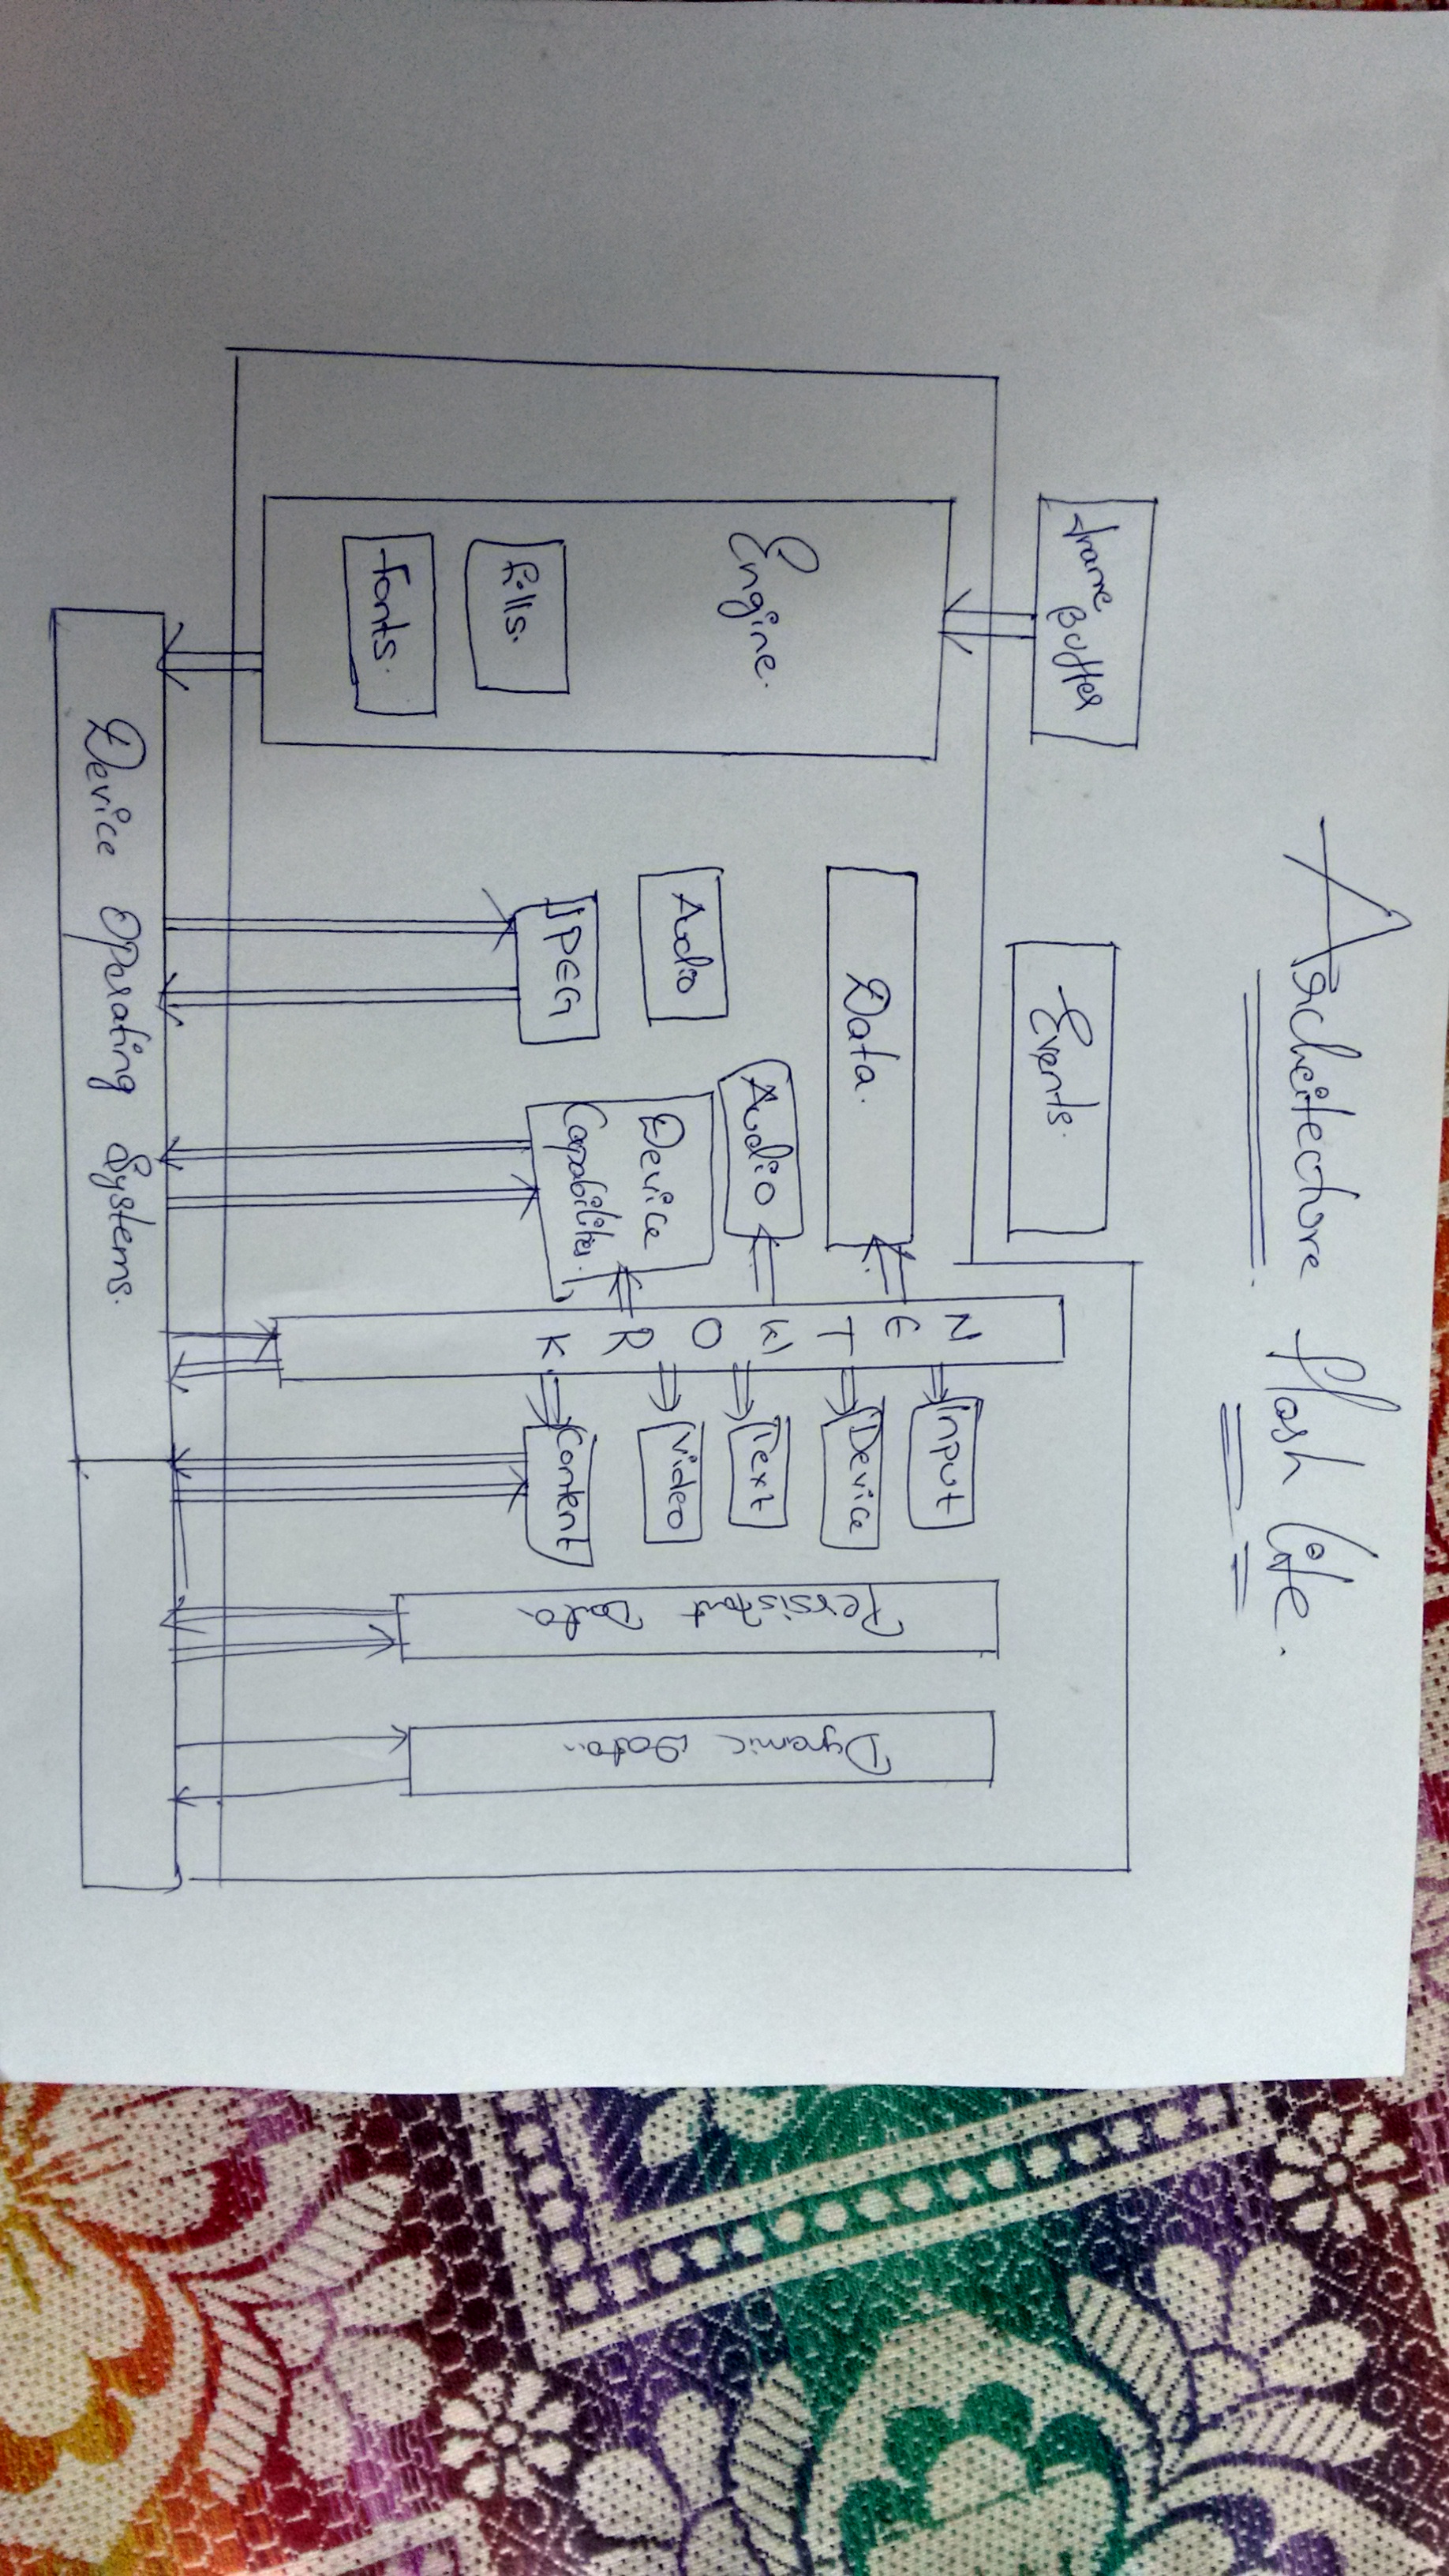 Archeitecture flash life.
frame
Buffer
Events.
Engine.
fills.
fonts.
Data.
Audio
Audio
JPEG
Device
Capabilities.
N
E
T
W
O
R
K
Input
Device
Text
Video
Content
Persistant Data
Dynamic Data.
Device Operating Systems.